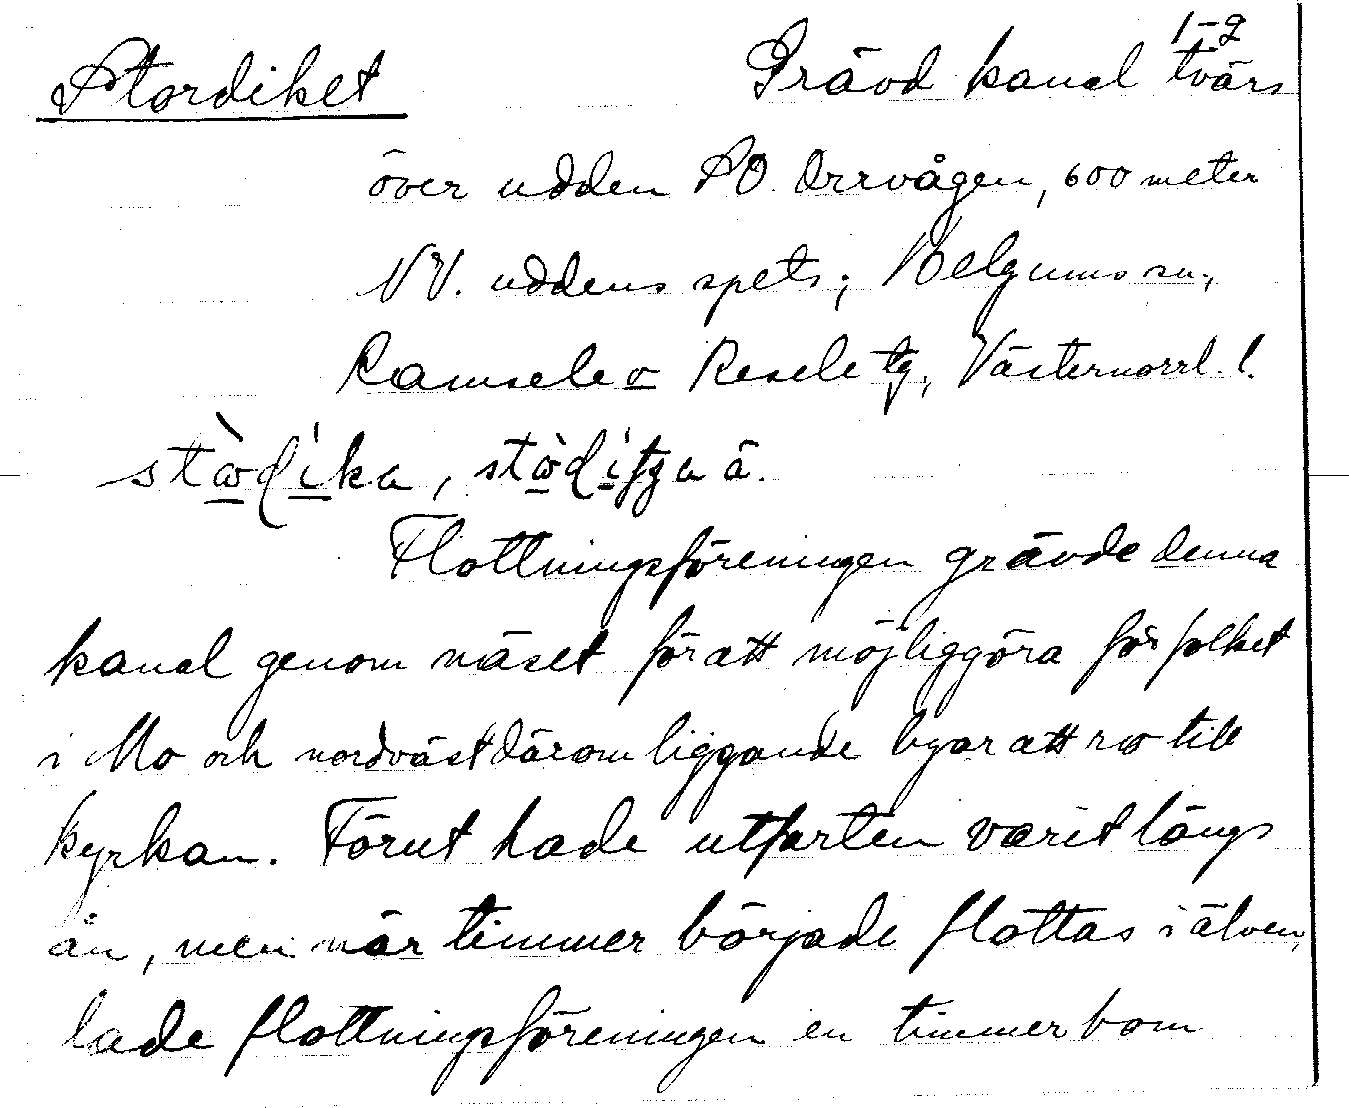 1-2
Stordiket Grävd kanal tvärs
över udden SO. Orrvågen, 600 meter
NV. uddens spets; Helgums sn.,
Ramsele o Resele tg, Västernorrl. l.
flottningsföreningen grävde denna
kanal genom näset för att möjliggöra för folket
i Mo och nordväst därom liggande byar att ro till
kyrkan. Förut hade utfarten varit längs
ån, men när timmer började flottas i älven,
lade flottningsföreningen en timmerbom